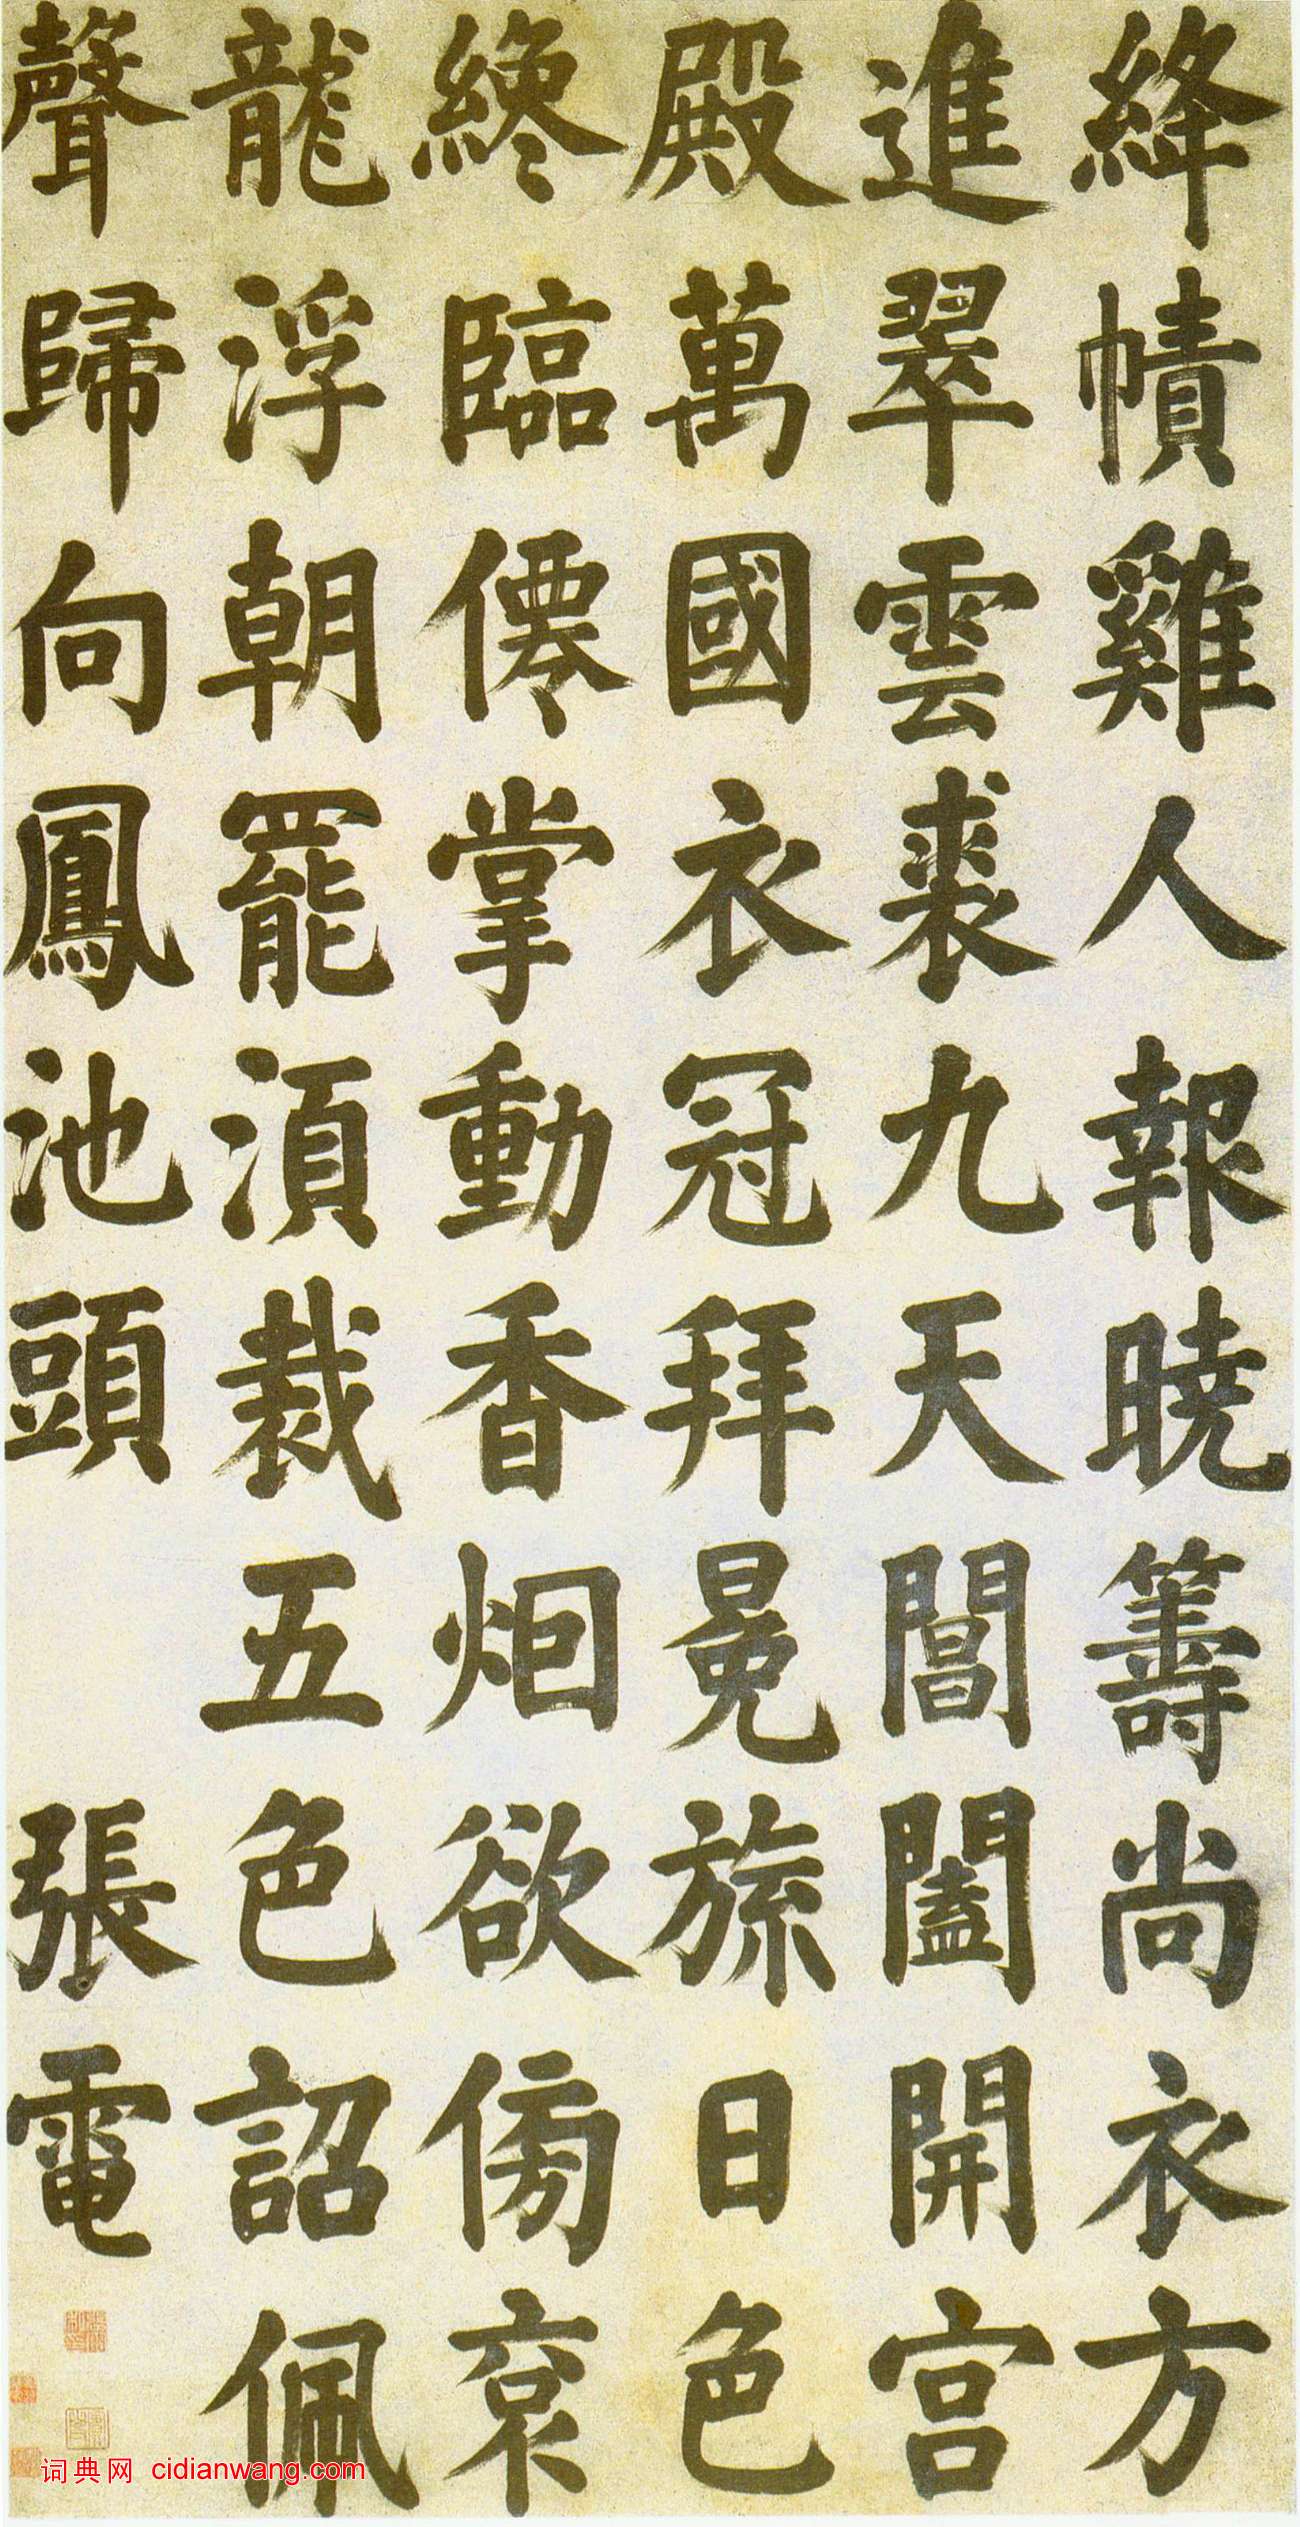 絳幘雞人報曉籌尚衣方
進翠雲裘九天閶闔開宫
殿萬國衣冠拜冕旒日色
纔臨僊掌動香烟欲傍衮
龍浮朝罷湏裁五色詔佩
聲歸向鳳池頭 張電
词典网 cidianwang.com